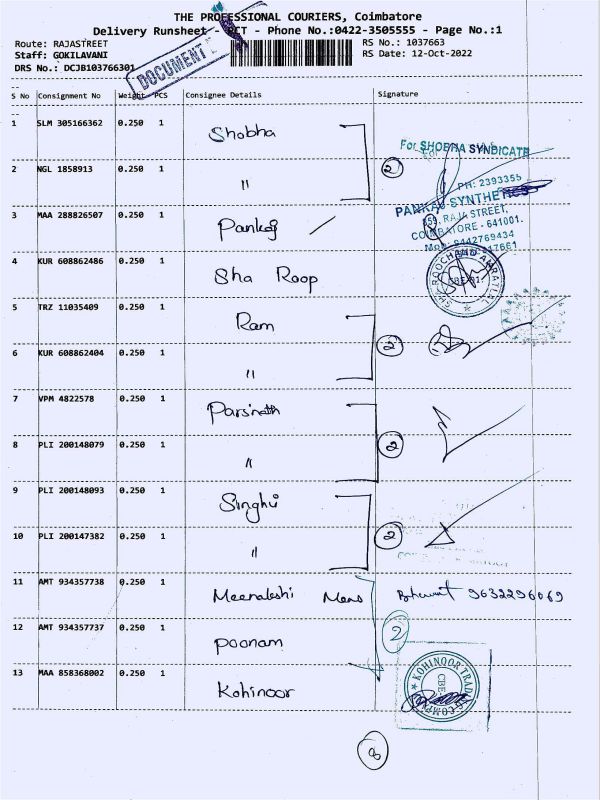 THE PROFESSIONAL COURIERS, Coimbatore
Delivery Runsheet - PCT - Phone No.:0422-3505555 - Page No.:1
Route: RAJASTREET
RS No.: 1037663
Staff: GOKILAVANI
RS Date: 12-Oct-2022
DRS No.: DCJB103766301
DOCUMENT
S No Consignment No Weight PCS Consignee Details Signature
1 SLM 305166362 0.250 1 Shobha
For SHOBHA SYNDICATE
2 NGL 1858913 0.250 1 "
2
PH: 2393355
PANKAJ SYNTHETICS
RAJA STREET,
COIMBATORE - 641001.
3 MAA 288826507 0.250 1 Pankaj
4 KUR 608862486 0.250 1 Sha Roop
5 TRZ 11035409 0.250 1 Ram
2
6 KUR 608862404 0.250 1 "
7 VPM 4822578 0.250 1 Parsinath
2
8 PLI 200148079 0.250 1 "
9 PLI 200148093 0.250 1 Singhi
2
10 PLI 200147382 0.250 1 "
11 AMT 934357738 0.250 1 Meenakshi Mens 9632296069
12 AMT 934357737 0.250 1 Poonam
2
13 MAA 858368002 0.250 1 Kohinoor
KOHINOOR TRADING COMPANY
CBE-1
8